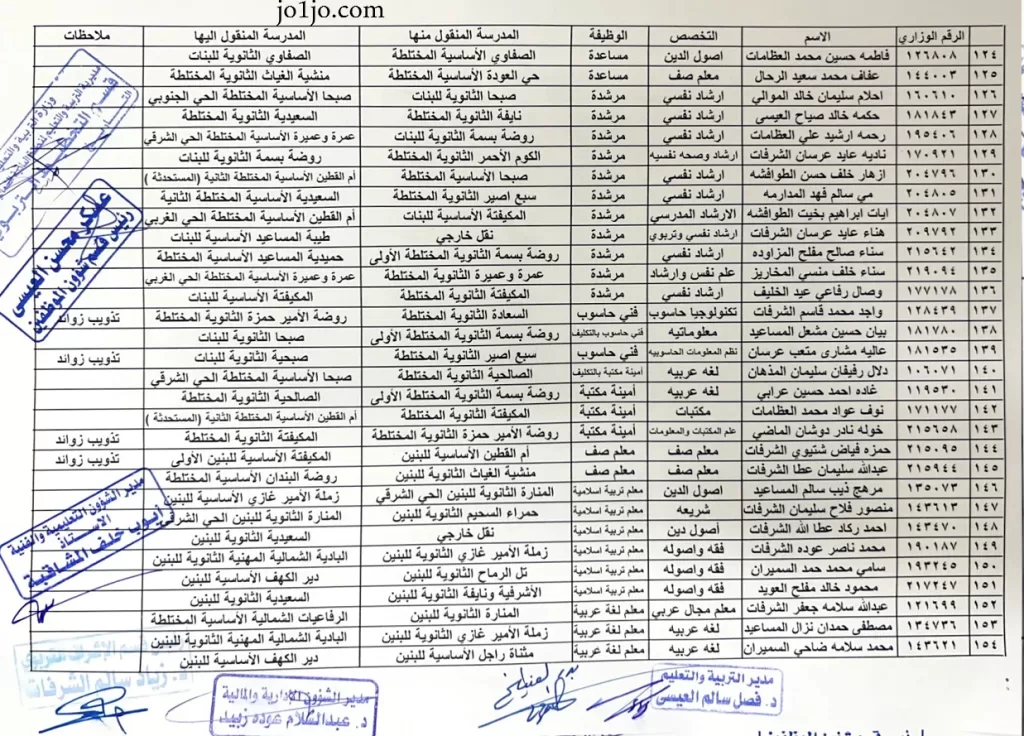 jo1jo.com
الرقم الوزاري الاسم التخصص الوظيفة المدرسة المنقول منها المدرسة المنقول اليها ملاحظات
١٢٤ ١٢٦٨٠٨ فاطمه حسين محمد العظامات اصول الدين مساعدة الصفاوي الأساسية المختلطة الصفاوي الثانوية للبنات
١٢٥ ١٤٤٠٠٣ عفاف محمد سعيد الرحال معلم صف مساعدة حي العودة الأساسية المختلطة منشية الغياث الثانوية المختلطة
١٢٦ ١٦٠٦١٠ احلام سليمان خالد الموالي ارشاد نفسي مرشدة صبحا الثانوية للبنات صبحا الأساسية المختلطة الحي الجنوبي
١٢٧ ١٨١٨٤٣ حكمه خالد صياح العيسى ارشاد نفسي مرشدة نايفة الثانوية المختلطة السعيدية الثانوية المختلطة
١٢٨ ١٩٥٤٠٦ رحمه ارشيد علي العظامات ارشاد نفسي مرشدة روضة بسمة الثانوية للبنات عمرة وعميرة الأساسية المختلطة الحي الشرقي
١٢٩ ١٧٠٩٢١ ناديه عايد عرسان الشرفات ارشاد وصحه نفسيه مرشدة الكوم الأحمر الثانوية المختلطة روضة بسمة الثانوية للبنات
١٣٠ ٢٠٤٧٩٦ ازهار خلف حسن الطوافشه ارشاد نفسي مرشدة صبحا الأساسية المختلطة أم القطين الأساسية المختلطة الثانية (المستحدثة )
١٣١ ٢٠٤٨٠٥ مي سالم فهد المدارمه ارشاد نفسي مرشدة سبع اصير الثانوية المختلطة السعيدية الأساسية المختلطة الثانية
١٣٢ ٢٠٤٨٠٧ ايات ابراهيم بخيت الطوافشه الارشاد المدرسي مرشدة المكيفتة الأساسية للبنات أم القطين الأساسية المختلطة الحي الغربي
١٣٣ ٢٠٩٧٩٢ هناء عايد عرسان الشرفات ارشاد نفسي وتربوي مرشدة نقل خارجي طيبة المساعيد الأساسية للبنات
١٣٤ ٢١٥٦٤٢ سناء صالح مفلح المزاوده ارشاد نفسي مرشدة روضة بسمة الأساسية المختلطة الأولى حميدية المساعيد الأساسية المختلطة
١٣٥ ٢١٩٠٩٤ سناء خلف منسي المخاريز علم نفس وارشاد مرشدة عمرة وعميرة الثانوية المختلطة عمرة وعميرة الأساسية المختلطة الحي الغربي
١٣٦ ١٧٧١٧٨ وصال رفاعي عيد الخليف ارشاد نفسي مرشدة المكيفتة الثانوية المختلطة المكيفتة الأساسية للبنات
١٣٧ ١٢٨٤٣٩ واجد محمد قاسم الشرفات تكنولوجيا حاسوب فني حاسوب السعادة الثانوية المختلطة روضة الأمير حمزة الثانوية المختلطة تذويب زوائد
١٣٨ ١٨١٧٨٠ بيان حسين مشعل المساعيد معلوماتيه فني حاسوب بالتكليف روضة بسمة الأساسية المختلطة الأولى صبحا الثانوية للبنات
١٣٩ ١٨١٥٣٥ عاليه مشارى متعب عرسان نظم المعلومات الحاسوبيه فني حاسوب سبع اصير الثانوية المختلطة صبحية الثانوية للبنات تذويب زوائد
١٤٠ ١٠٦٠٧١ دلال رفيفان سليمان المذهان لغه عربيه أمينة مكتبة بالتكليف الصالحية الثانوية للبنات صبحا الأساسية المختلطة الحي الشرقي
١٤١ ١١٩٥٣٠ غاده احمد حسين عرابي لغه عربيه أمينة مكتبة روضة بسمة الأساسية المختلطة الأولى الصالحية الثانوية المختلطة
١٤٢ ١٧١١٧٧ نوف عواد محمد العظامات مكتبات أمينة مكتبة المكيفتة الثانوية المختلطة أم القطين الأساسية المختلطة الثانية (المستحدثة )
١٤٣ ٢١٥٦٥٨ خوله نادر دوشان الماضي علم المكتبات والمعلومات أمينة مكتبة روضة الأمير حمزة الثانوية المختلطة المكيفتة الثانوية المختلطة تذويب زوائد
١٤٤ ٢١٥٠٩٥ حمزه فياض شتيوي الشرفات معلم صف معلم صف أم القطين الأساسية للبنين المكيفتة الأساسية للبنين الأولى تذويب زوائد
١٤٥ ٢١٥٩٤٤ عبدالله سليمان عطا الشرفات معلم صف معلم صف منشية الغياث الثانوية للبنين روضة البندان الأساسية المختلطة
١٤٦ ١٣٥٠٧٣ مرهج ذيب سالم المساعيد اصول الدين معلم تربية اسلامية المنارة الثانوية للبنين الحي الشرقي زملة الأمير غازي الأساسية للبنين
١٤٧ ١٤٣٦١٣ منصور فلاح سليمان الشرفات شريعه معلم تربية اسلامية حمراء السحيم الثانوية للبنين المنارة الثانوية للبنين الحي الشرقي
١٤٨ ١٤٣٤٧٠ احمد ركاد عطا الله الشرفات أصول دين معلم تربية اسلامية نقل خارجي السعيدية الثانوية للبنين
١٤٩ ١٩٠١٨٧ محمد ناصر عوده الشرفات فقه واصوله معلم تربية اسلامية زملة الأمير غازي الثانوية للبنين البادية الشمالية المهنية الثانوية للبنين
١٥٠ ١٩٣٢٤٥ سامي محمد حمد السميران فقه واصوله معلم تربية اسلامية تل الرماح الثانوية للبنين دير الكهف الأساسية للبنين
١٥١ ٢١٧٢٤٧ محمود خالد مفلح العويد فقه واصوله معلم تربية اسلامية الأشرفية ونايفة الثانوية للبنين السعيدية الثانوية للبنين
١٥٢ ١٢١٦٩٩ عبدالله سلامه جعفر الشرفات معلم مجال عربي معلم لغة عربية المنارة الثانوية للبنين الرفاعيات الشمالية الأساسية المختلطة
١٥٣ ١٣٤٧٣٦ مصطفى حمدان نزال المساعيد لغه عربيه معلم لغة عربية زملة الأمير غازي الثانوية للبنين البادية الشمالية المهنية الثانوية للبنين
١٥٤ ١٤٣٦٢١ محمد سلامه ضاحي السميران لغه عربيه معلم لغة عربية مثناة راجل الأساسية للبنين دير الكهف الأساسية للبنين
عسكر محسن العيسى
رئيس قسم شؤون الموظفين
مدير الشؤون التعليمية والفنية
الاستاذ
أيوب خلف المشاقبة
قسم الإشراف التربوي
د. زياد سالم الشرفات
مدير الشؤون الإدارية والمالية
د. عبدالسلام عوده زبيد
مدير التربية والتعليم
د. فصل سالم العيسى